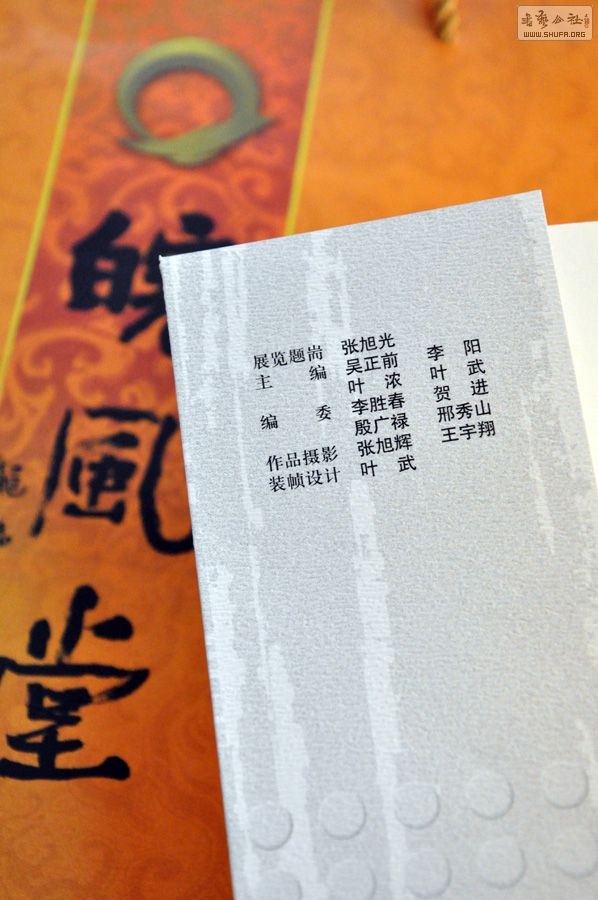 書藝公社
WWW.SHUFA.ORG
皖風堂
展览题耑 张旭光
主编 吴正前 李阳
叶浓 叶武
编委 李胜春 贺进
殷广禄 邢秀山
作品摄影 张旭辉 王宇翔
装帧设计 叶武